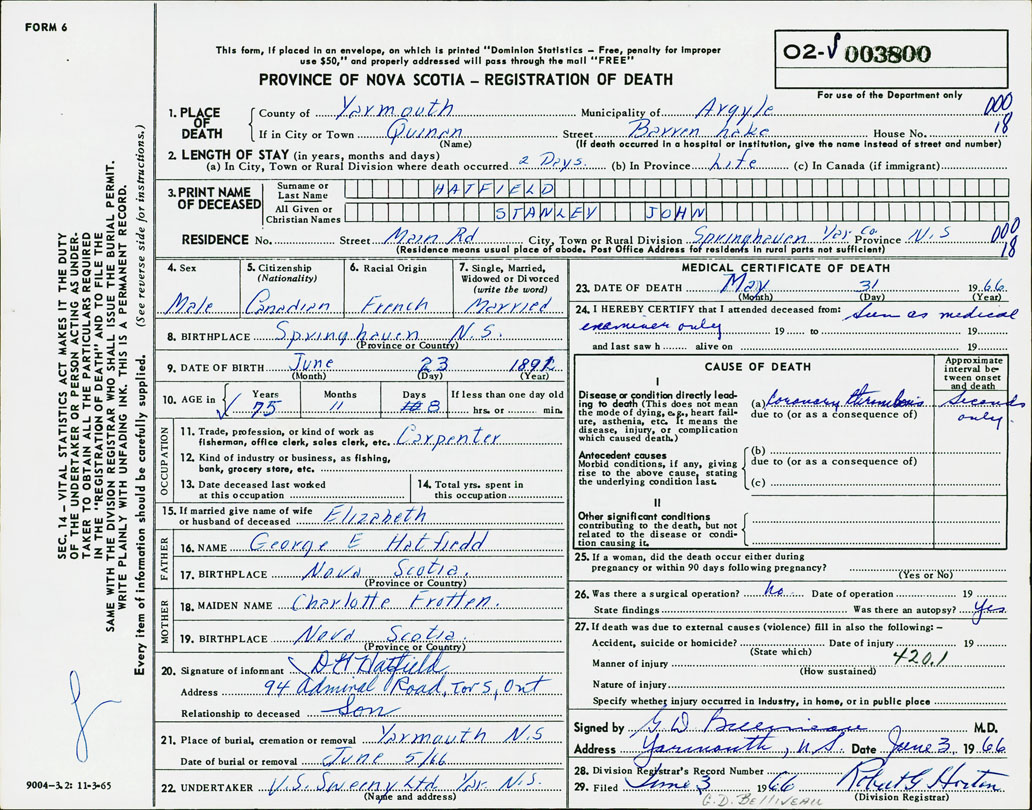 FORM 6
This form, if placed in an envelope, on which is printed "Dominion Statistics – Free, penalty for improper
use $50," and properly addressed will pass through the mail "FREE"
PROVINCE OF NOVA SCOTIA – REGISTRATION OF DEATH
02-V 003800
For use of the Department only
1. PLACE OF DEATH
County of Yarmouth Municipality of Argyle 000
If in City or Town Quinan Street Barren Lake House No. 18
(Name) (If death occurred in a hospital or institution, give the name instead of street and number)
2. LENGTH OF STAY (in years, months and days)
(a) In City, Town or Rural Division where death occurred 2 Days. (b) In Province Life (c) In Canada (if immigrant)
3. PRINT NAME OF DECEASED
Surname or Last Name HATFIELD
All Given or Christian Names STANLEY JOHN
RESIDENCE No. Street Main Rd City, Town or Rural Division Springhaven Yar Co. Province N.S 000
(Residence means usual place of abode. Post Office Address for residents in rural parts not sufficient) 18
4. Sex Male
5. Citizenship (Nationality) Canadian
6. Racial Origin French
7. Single, Married, Widowed or Divorced (write the word) Married
8. BIRTHPLACE Springhaven N.S.
(Province or Country)
9. DATE OF BIRTH June 23 1891
(Month) (Day) (Year)
10. AGE in Years 75 Months 11 Days 8 If less than one day old hrs. or min.
OCCUPATION
11. Trade, profession, or kind of work as fisherman, office clerk, sales clerk, etc. Carpenter
12. Kind of industry or business, as fishing, bank, grocery store, etc.
13. Date deceased last worked at this occupation
14. Total yrs. spent in this occupation
15. If married give name of wife or husband of deceased Elizabeth
FATHER
16. NAME George E Hatfiedd
17. BIRTHPLACE Nova Scotia.
(Province or Country)
MOTHER
18. MAIDEN NAME Charlotte Frotten.
19. BIRTHPLACE Nova Scotia.
(Province or Country)
20. Signature of informant D H Hatfield
Address 94 Admiral Road, Tor 5, Ont
Relationship to deceased Son
21. Place of burial, cremation or removal Yarmouth N.S
Date of burial or removal June 5/66
22. UNDERTAKER V.S. Sweeny Ltd Yar. N.S.
(Name and address)
MEDICAL CERTIFICATE OF DEATH
23. DATE OF DEATH May 31 1966
(Month) (Day) (Year)
24. I HEREBY CERTIFY that I attended deceased from: Seen as medical
examiner only 19 to 19
and last saw h alive on 19
CAUSE OF DEATH
Approximate interval between onset and death
I
Disease or condition directly leading to death (This does not mean the mode of dying, e.g., heart failure, asthenia, etc. It means the disease, injury, or complication which caused death.)
(a) Coronary thrombosis seconds only.
due to (or as a consequence of)
Antecedent causes
Morbid conditions, if any, giving rise to the above cause, stating the underlying condition last.
(b)
due to (or as a consequence of)
(c)
II
Other significant conditions
contributing to the death, but not related to the disease or condition causing it.
25. If a woman, did the death occur either during
pregnancy or within 90 days following pregnancy?
(Yes or No)
26. Was there a surgical operation? No Date of operation 19
State findings Was there an autopsy? Yes
27. If death was due to external causes (violence) fill in also the following: –
Accident, suicide or homicide? Date of injury 19
(State which)
Manner of injury 420.1
(How sustained)
Nature of injury
Specify whether injury occurred in industry, in home, or in public place
Signed by G D Belliveau M.D.
Address Yarmouth, N.S. Date June 3, 1966
28. Division Registrar's Record Number
29. Filed June 3 1966 Robert G Horton
G.D. BELLIVEAU (Division Registrar)
SEC. 14 – VITAL STATISTICS ACT MAKES IT THE DUTY
OF THE UNDERTAKER OR PERSON ACTING AS UNDER-
TAKER TO OBTAIN ALL THE PARTICULARS REQUIRED
IN THE "REGISTRATION OF DEATH" AND TO FILE THE
SAME WITH THE DIVISION REGISTRAR WHO SHALL ISSUE THE BURIAL PERMIT.
WRITE PLAINLY WITH UNFADING INK. THIS IS A PERMANENT RECORD.
Every item of information should be carefully supplied. (See reverse side for instructions.)
9004-3.2: 11-3-65